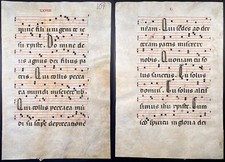 fili unigenite ie
su xpiste. Domine de
us agnus dei filius pa
tris. Qui tollis pecca
ta mundi miserere
Qui tollis peccata mu
di suscipe deprecatione
Qui sedes ad dex
teram patris miserere
nobis. Quoniam tu so
lus sanctus. Tu solus
dominus. Tu solus al
tissimus ihu xpiste. Cum
sco spiritu in gloria dei